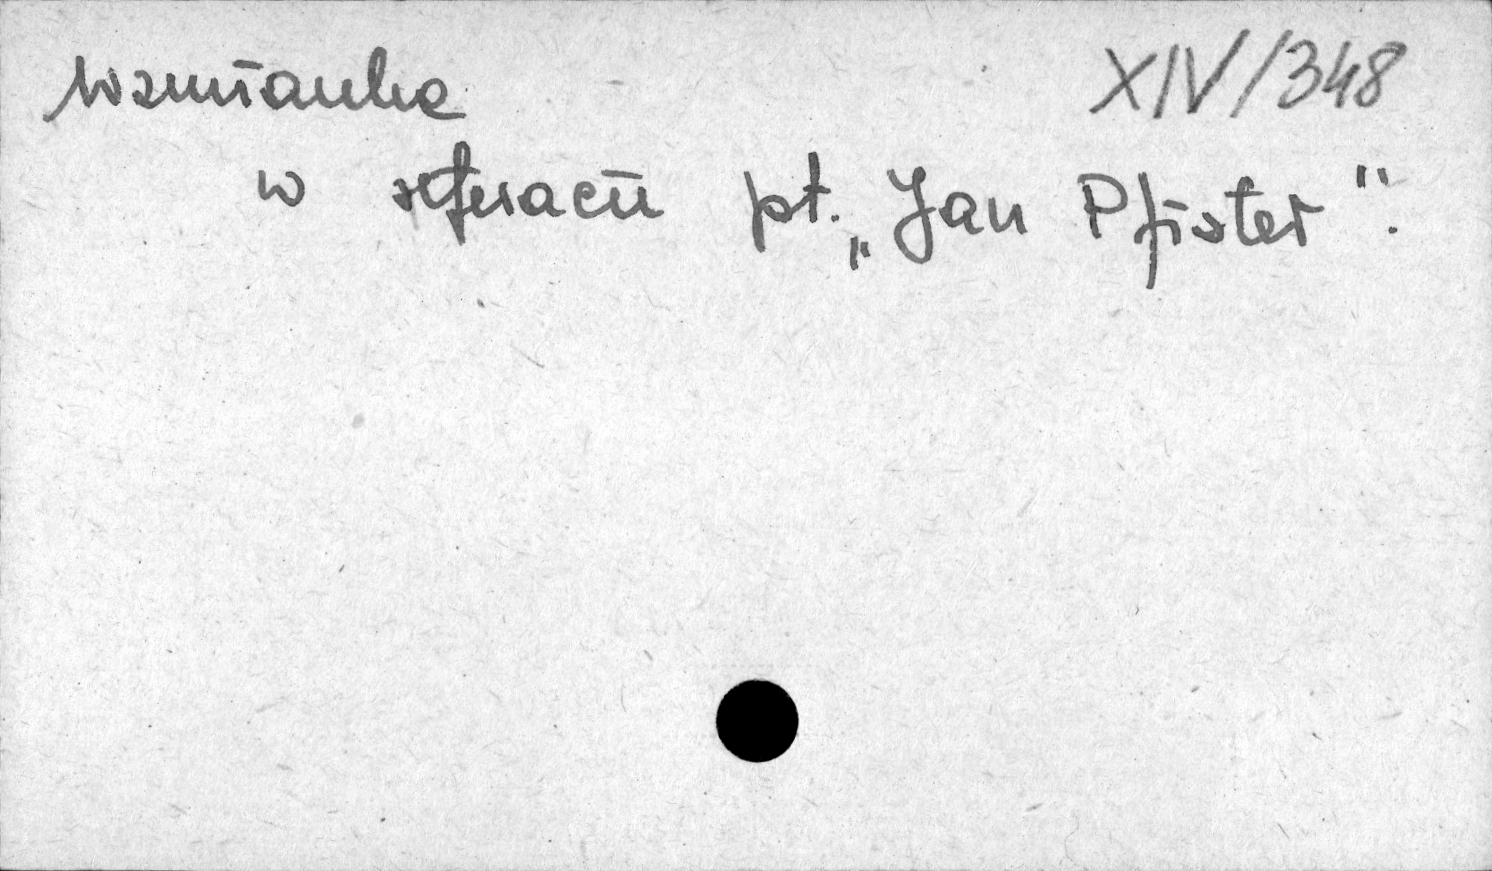 Wzmianka XIV/348
w referacie pt. „Jan Pfister".